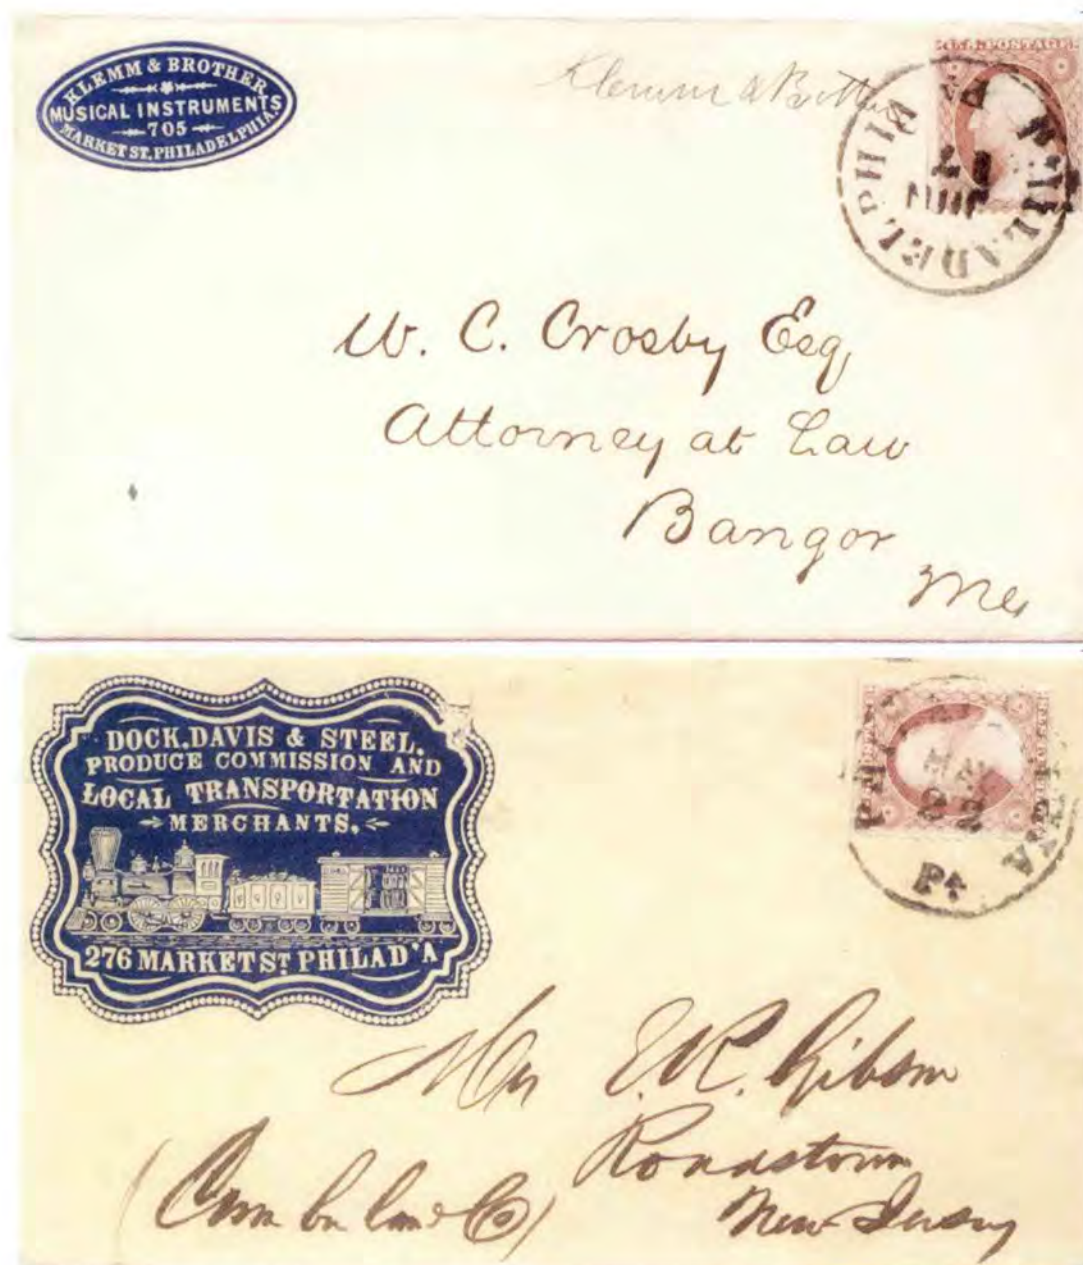 KLEMM & BROTHER,
MUSICAL INSTRUMENTS
705
MARKET ST. PHILADELPHIA.
Klemm & Brother
U.S. POSTAGE
PHILADELPHIA
Pa
JUN
W. C. Crosby Esq,
Attorney at Law
Bangor
Me
DOCK. DAVIS & STEEL.
PRODUCE COMMISSION AND
LOCAL TRANSPORTATION
MERCHANTS,
276 MARKET ST. PHILAD'A
Pa
Mr E. R. Gibson
Roadstown
(Cumberland Co)
New Jersey